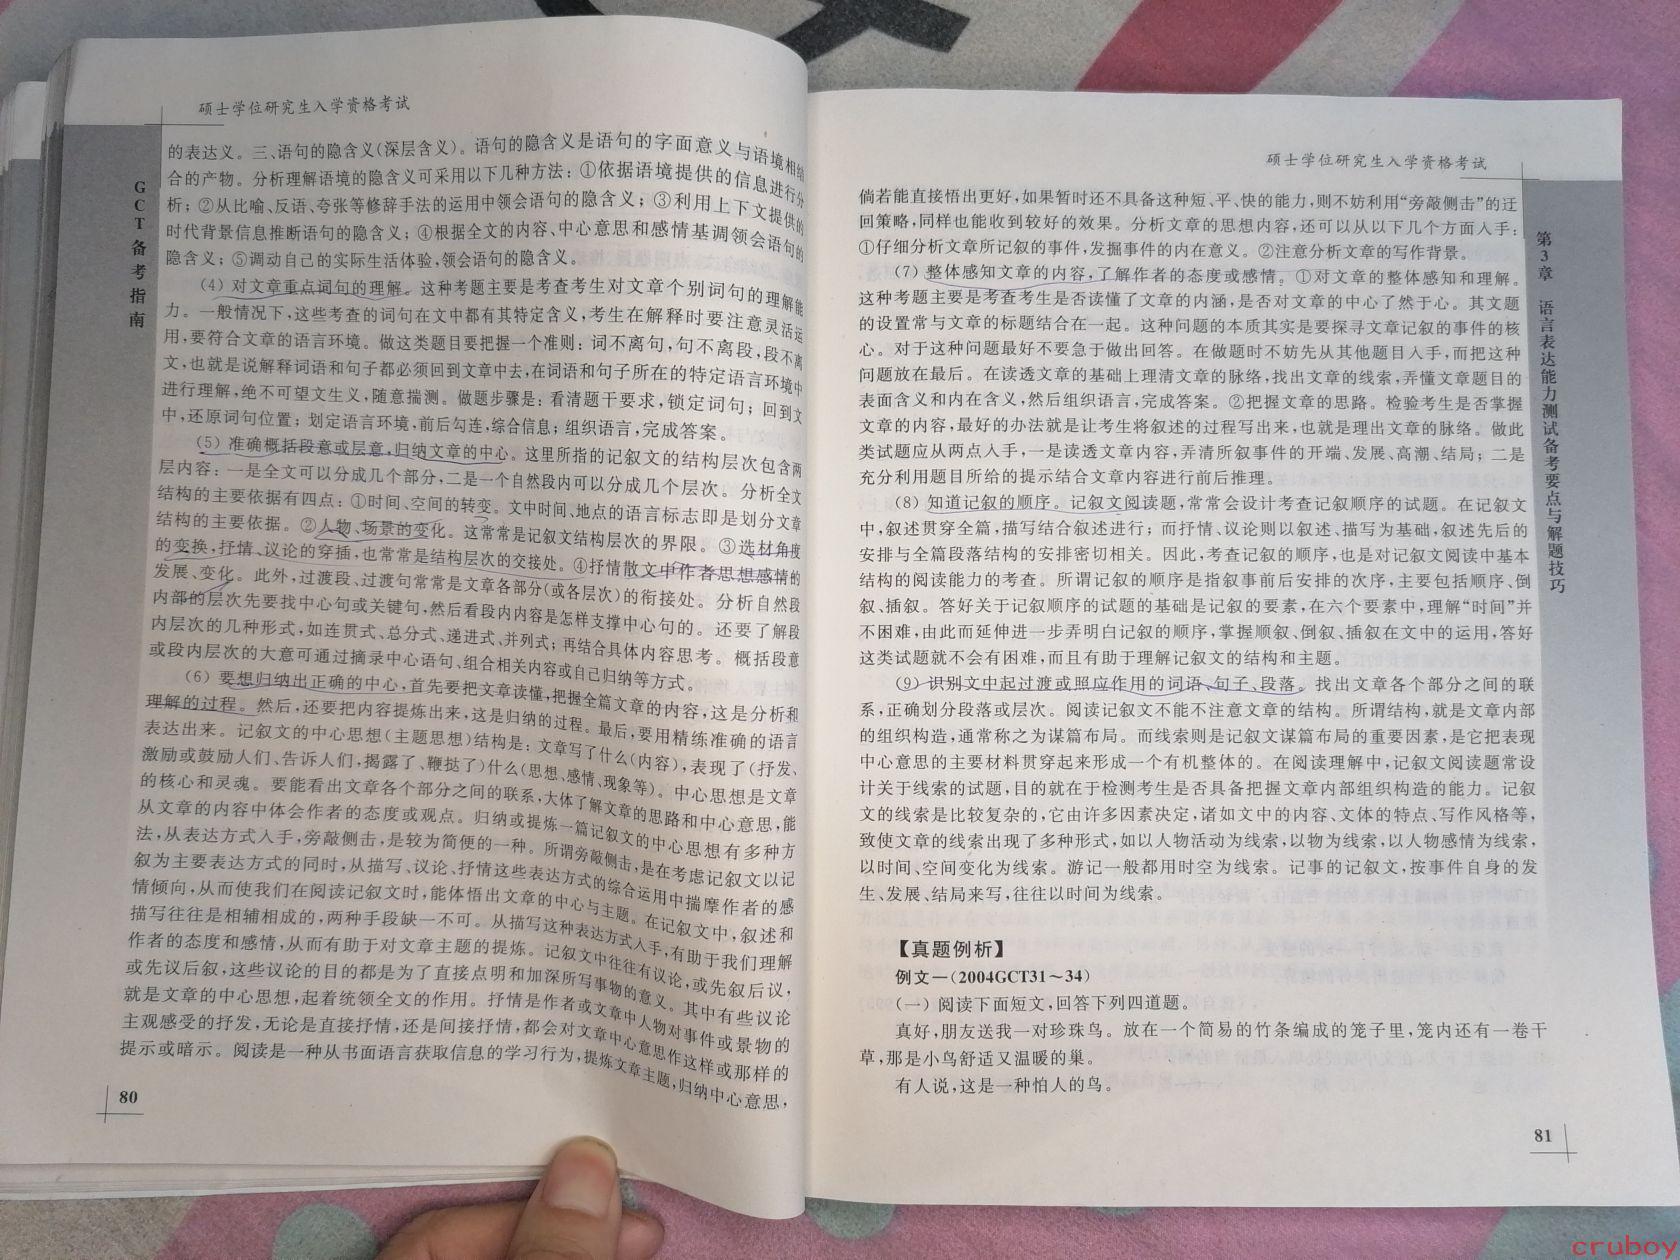 硕士学位研究生入学资格考试
GCT备考指南
的表达义。三、语句的隐含义(深层含义)。语句的隐含义是语句的字面意义与语境相结
合的产物。分析理解语境的隐含义可采用以下几种方法：①依据语境提供的信息进行分
析；②从比喻、反语、夸张等修辞手法的运用中领会语句的隐含义；③利用上下文提供的
时代背景信息推断语句的隐含义；④根据全文的内容、中心意思和感情基调领会语句的
隐含义；⑤调动自己的实际生活体验,领会语句的隐含义。
(4) 对文章重点词句的理解。这种考题主要是考查考生对文章个别词句的理解能
力。一般情况下,这些考查的词句在文中都有其特定含义,考生在解释时要注意灵活运
用,要符合文章的语言环境。做这类题目要把握一个准则：词不离句,句不离段,段不离
文,也就是说解释词语和句子都必须回到文章中去,在词语和句子所在的特定语言环境中
进行理解,绝不可望文生义,随意揣测。做题步骤是：看清题干要求,锁定词句；回到文
中,还原词句位置；划定语言环境,前后勾连,综合信息；组织语言,完成答案。
(5) 准确概括段意或层意,归纳文章的中心。这里所指的记叙文的结构层次包含两
层内容：一是全文可以分成几个部分,二是一个自然段内可以分成几个层次。分析全文
结构的主要依据有四点：①时间、空间的转变。文中时间、地点的语言标志即是划分文章
结构的主要依据。②人物、场景的变化。这常常是记叙文结构层次的界限。③选材角度
的变换,抒情、议论的穿插,也常常是结构层次的交接处。④抒情散文中作者思想感情的
发展、变化。此外,过渡段、过渡句常常是文章各部分(或各层次)的衔接处。分析自然段
内部的层次先要找中心句或关键句,然后看段内内容是怎样支撑中心句的。还要了解段
内层次的几种形式,如连贯式、总分式、递进式、并列式；再结合具体内容思考。概括段意
或段内层次的大意可通过摘录中心语句、组合相关内容或自己归纳等方式。
(6) 要想归纳出正确的中心,首先要把文章读懂,把握全篇文章的内容,这是分析和
理解的过程。然后,还要把内容提炼出来,这是归纳的过程。最后,要用精练准确的语言
表达出来。记叙文的中心思想(主题思想)结构是：文章写了什么(内容),表现了(抒发、
激励或鼓励人们、告诉人们,揭露了、鞭挞了)什么(思想、感情、现象等)。中心思想是文章
的核心和灵魂。要能看出文章各个部分之间的联系,大体了解文章的思路和中心意思,能
从文章的内容中体会作者的态度或观点。归纳或提炼一篇记叙文的中心思想有多种方
法,从表达方式入手,旁敲侧击,是较为简便的一种。所谓旁敲侧击,是在考虑记叙文以记
叙为主要表达方式的同时,从描写、议论、抒情这些表达方式的综合运用中揣摩作者的感
情倾向,从而使我们在阅读记叙文时,能体悟出文章的中心与主题。在记叙文中,叙述和
描写往往是相辅相成的,两种手段缺一不可。从描写这种表达方式入手,有助于我们理解
作者的态度和感情,从而有助于对文章主题的提炼。记叙文中往往有议论,或先叙后议,
或先议后叙,这些议论的目的都是为了直接点明和加深所写事物的意义。其中有些议论
就是文章的中心思想,起着统领全文的作用。抒情是作者或文章中人物对事件或景物的
主观感受的抒发,无论是直接抒情,还是间接抒情,都会对文章中心意思作这样或那样的
提示或暗示。阅读是一种从书面语言获取信息的学习行为,提炼文章主题,归纳中心意思,
80
硕士学位研究生入学资格考试
第3章 语言表达能力测试备考要点与解题技巧
倘若能直接悟出更好,如果暂时还不具备这种短、平、快的能力,则不妨利用“旁敲侧击”的迂
回策略,同样也能收到较好的效果。分析文章的思想内容,还可以从以下几个方面入手：
①仔细分析文章所记叙的事件,发掘事件的内在意义。②注意分析文章的写作背景。
(7) 整体感知文章的内容,了解作者的态度或感情。①对文章的整体感知和理解。
这种考题主要是考查考生是否读懂了文章的内涵,是否对文章的中心了然于心。其文题
的设置常与文章的标题结合在一起。这种问题的本质其实是要探寻文章记叙的事件的核
心。对于这种问题最好不要急于做出回答。在做题时不妨先从其他题目入手,而把这种
问题放在最后。在读透文章的基础上理清文章的脉络,找出文章的线索,弄懂文章题目的
表面含义和内在含义,然后组织语言,完成答案。②把握文章的思路。检验考生是否掌握
文章的内容,最好的办法就是让考生将叙述的过程写出来,也就是理出文章的脉络。做此
类试题应从两点入手,一是读透文章内容,弄清所叙事件的开端、发展、高潮、结局；二是
充分利用题目所给的提示结合文章内容进行前后推理。
(8) 知道记叙的顺序。记叙文阅读题,常常会设计考查记叙顺序的试题。在记叙文
中,叙述贯穿全篇,描写结合叙述进行；而抒情、议论则以叙述、描写为基础,叙述先后的
安排与全篇段落结构的安排密切相关。因此,考查记叙的顺序,也是对记叙文阅读中基本
结构的阅读能力的考查。所谓记叙的顺序是指叙事前后安排的次序,主要包括顺序、倒
叙、插叙。答好关于记叙顺序的试题的基础是记叙的要素,在六个要素中,理解“时间”并
不困难,由此而延伸进一步弄明白记叙的顺序,掌握顺叙、倒叙、插叙在文中的运用,答好
这类试题就不会有困难,而且有助于理解记叙文的结构和主题。
(9) 识别文中起过渡或照应作用的词语、句子、段落。找出文章各个部分之间的联
系,正确划分段落或层次。阅读记叙文不能不注意文章的结构。所谓结构,就是文章内部
的组织构造,通常称之为谋篇布局。而线索则是记叙文谋篇布局的重要因素,是它把表现
中心意思的主要材料贯穿起来形成一个有机整体的。在阅读理解中,记叙文阅读题常设
计关于线索的试题,目的就在于检测考生是否具备把握文章内部组织构造的能力。记叙
文的线索是比较复杂的,它由许多因素决定,诸如文中的内容、文体的特点、写作风格等,
致使文章的线索出现了多种形式,如以人物活动为线索,以物为线索,以人物感情为线索,
以时间、空间变化为线索。游记一般都用时空为线索。记事的记叙文,按事件自身的发
生、发展、结局来写,往往以时间为线索。
【真题例析】
例文一(2004GCT31～34)
(一) 阅读下面短文,回答下列四道题。
真好,朋友送我一对珍珠鸟。放在一个简易的竹条编成的笼子里,笼内还有一卷干
草,那是小鸟舒适又温暖的巢。
有人说,这是一种怕人的鸟。
81
cruboy